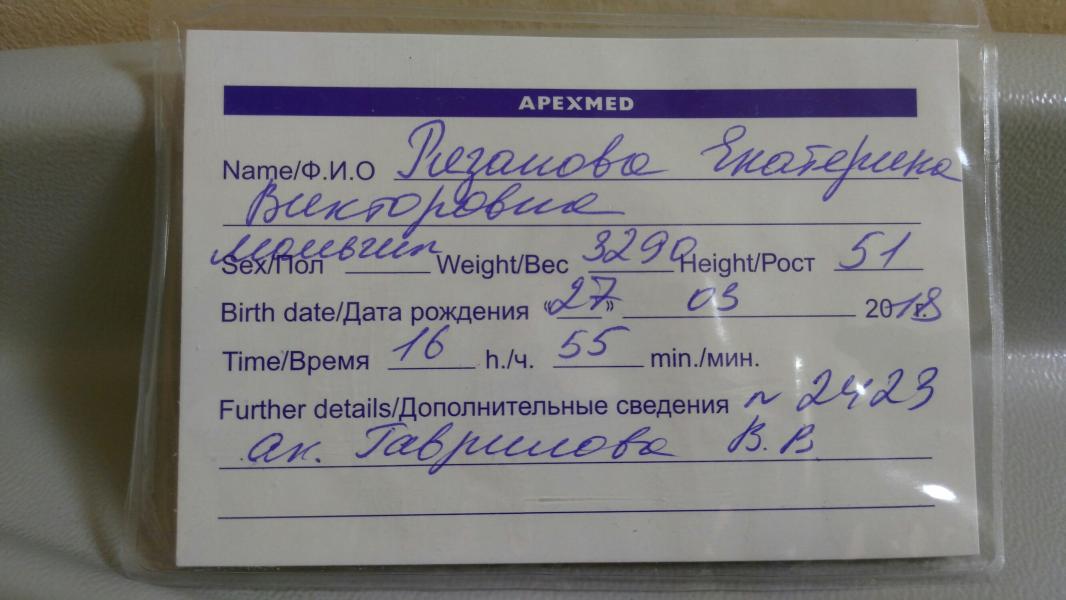 APEXMED
Name/Ф.И.О Рязанова Екатерина
Викторовна
Sex/Пол мальчик Weight/Вес 3290 Height/Рост 51
Birth date/Дата рождения "27" 03 2018 г.
Time/Время 16 h./ч. 55 min./мин.
Further details/Дополнительные сведения № 2423
ак. Гаврилова В.В